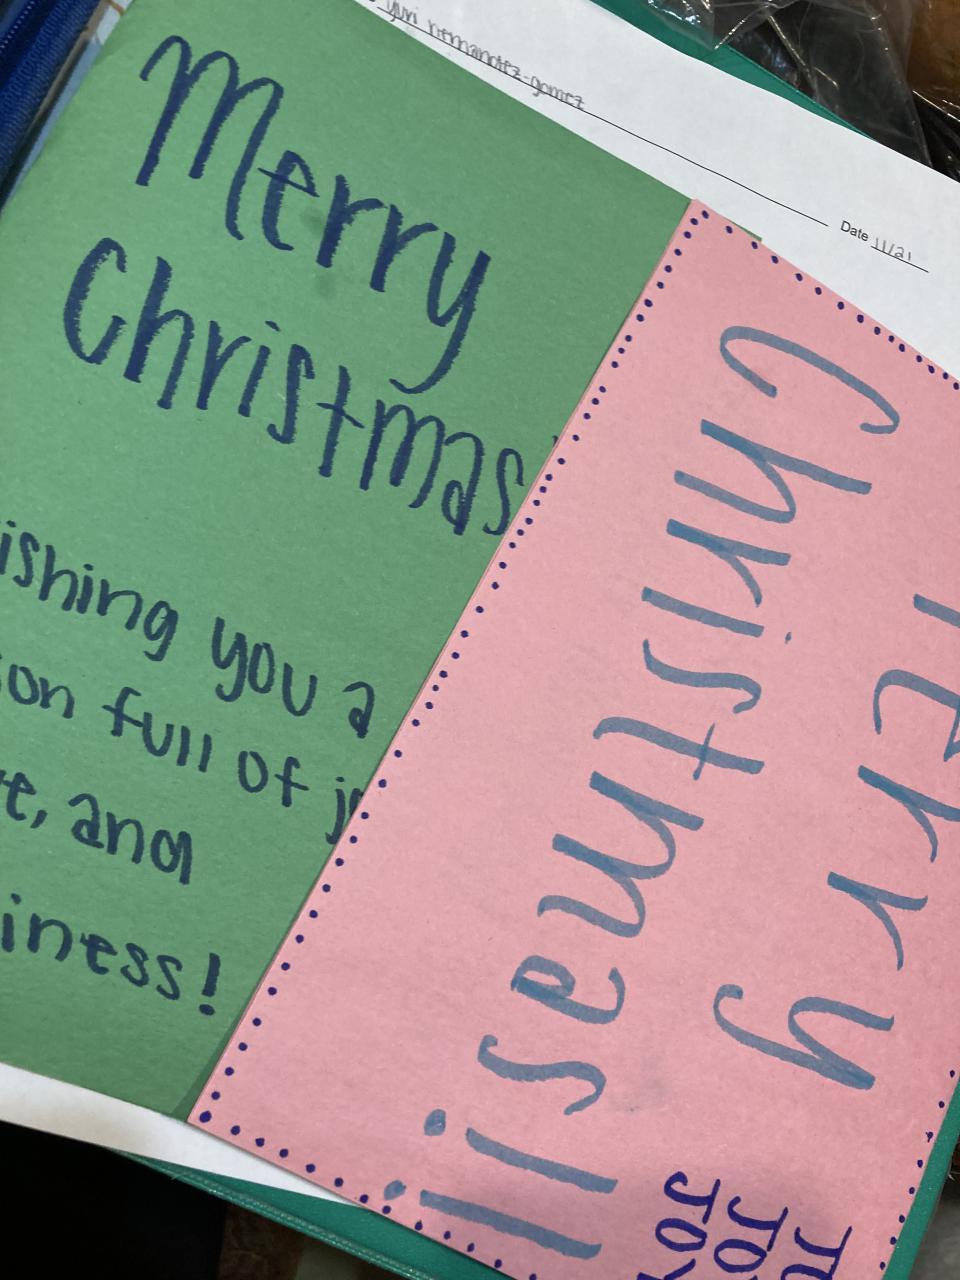 yuri hernandez-gomez
Date 11/21
Merry
Christmas
ishing you a
on full of jo
e, and
iness!
erry
Christmas!!
JO
JOY
JOY